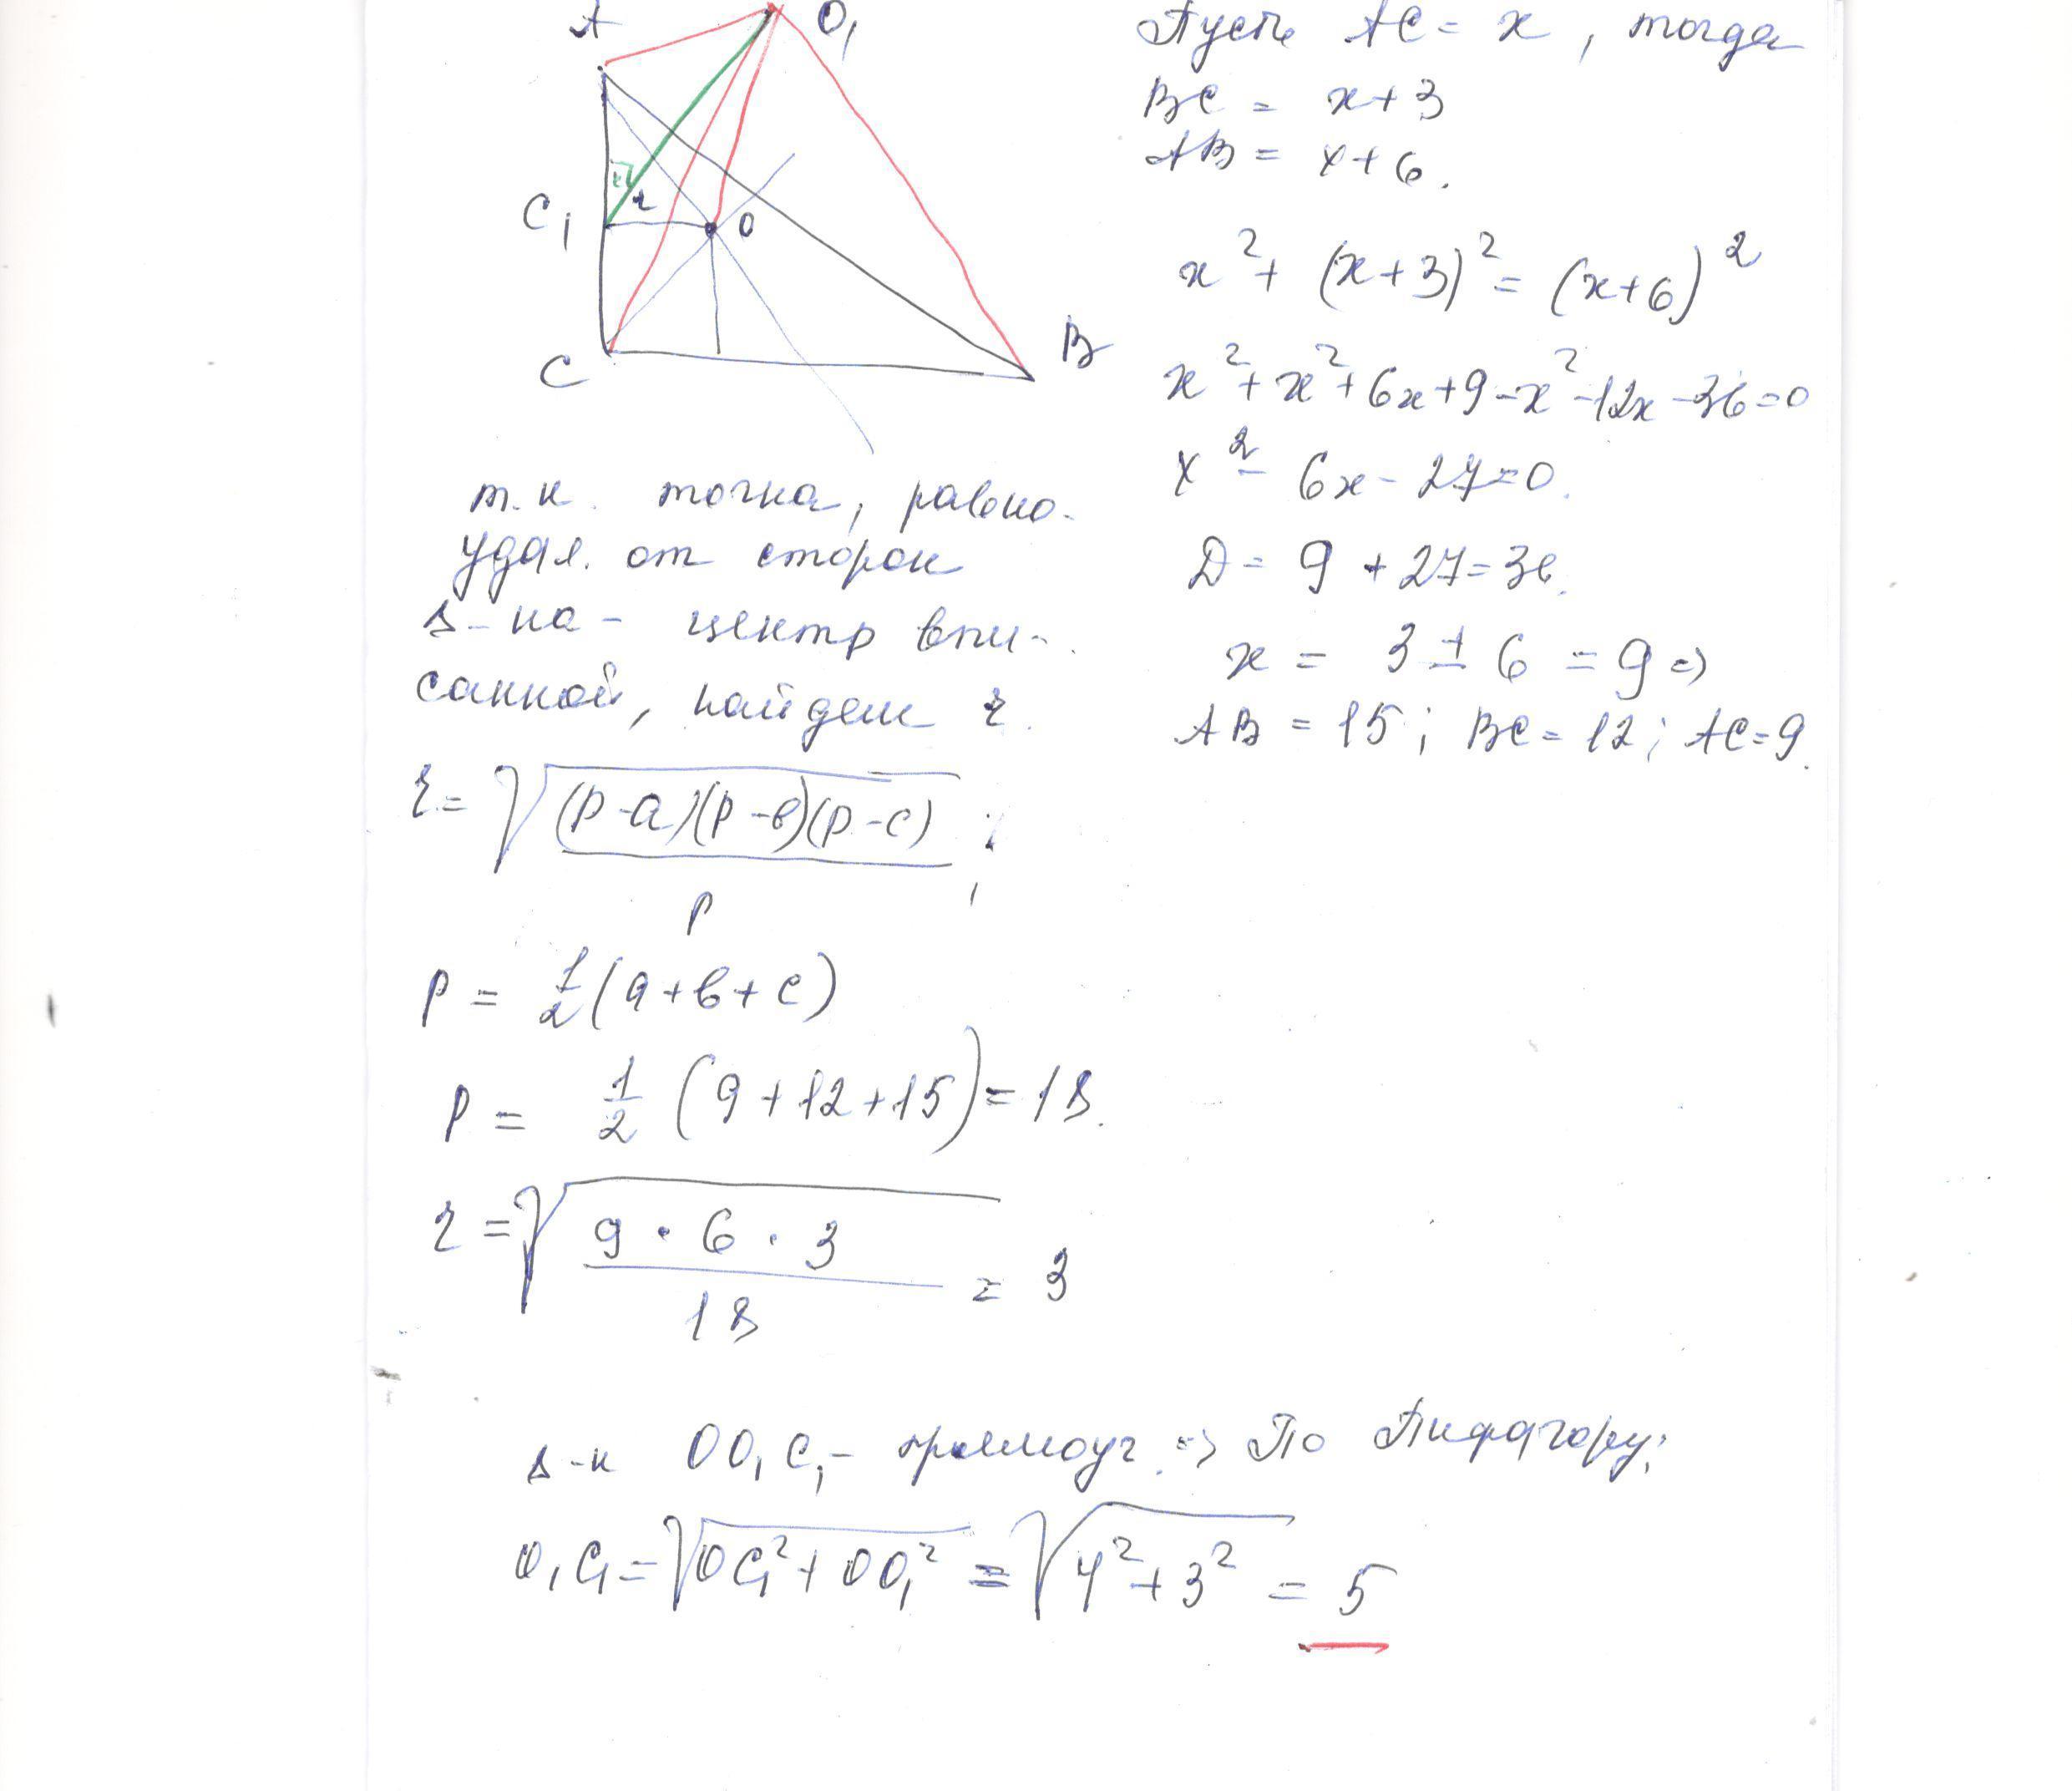 A
O₁
C₁
r
O
C
B
Пусть AC = x, тогда
BC = x+3
AB = x+6.
x² + (x+3)² = (x+6)²
x² + x² + 6x + 9 - x² - 12x - 36 = 0
x² - 6x - 27 = 0.
D = 9 + 27 = 36.
x = 3 ± 6 = 9 =>
AB = 15; BC = 12; AC = 9.
т.к. точка, равно-
удал. от сторон
Δ-ка - центр впи-
санной, найдем r.
r = √((p-a)(p-b)(p-c)) ;
p
p = 1/2 (a+b+c)
p = 1/2 (9+12+15) = 18.
r = √(9 · 6 · 3 / 18) = 3
Δ-к OO₁C₁ - прямоуг. => По Пифагору:
O₁C₁ = √(OC₁² + OO₁²) = √(4² + 3²) = 5